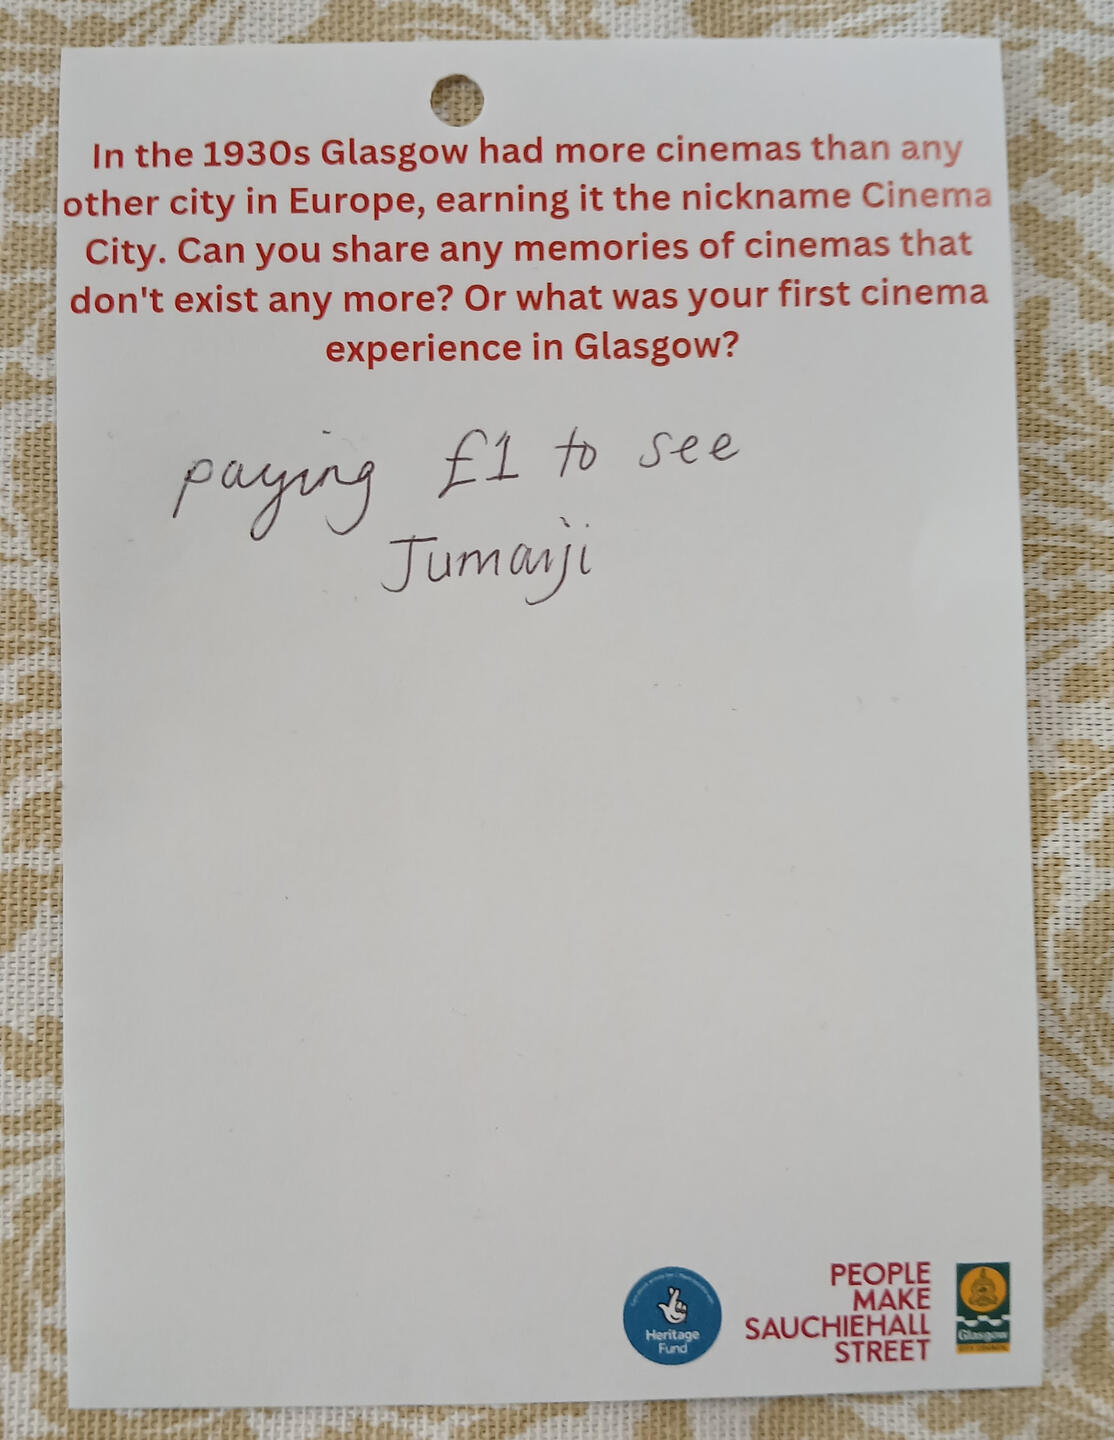 In the 1930s Glasgow had more cinemas than any
other city in Europe, earning it the nickname Cinema
City. Can you share any memories of cinemas that
don't exist any more? Or what was your first cinema
experience in Glasgow?
paying £1 to see
Jumaiji
Heritage
Fund
PEOPLE
MAKE
SAUCHIEHALL
STREET
Glasgow
CITY COUNCIL